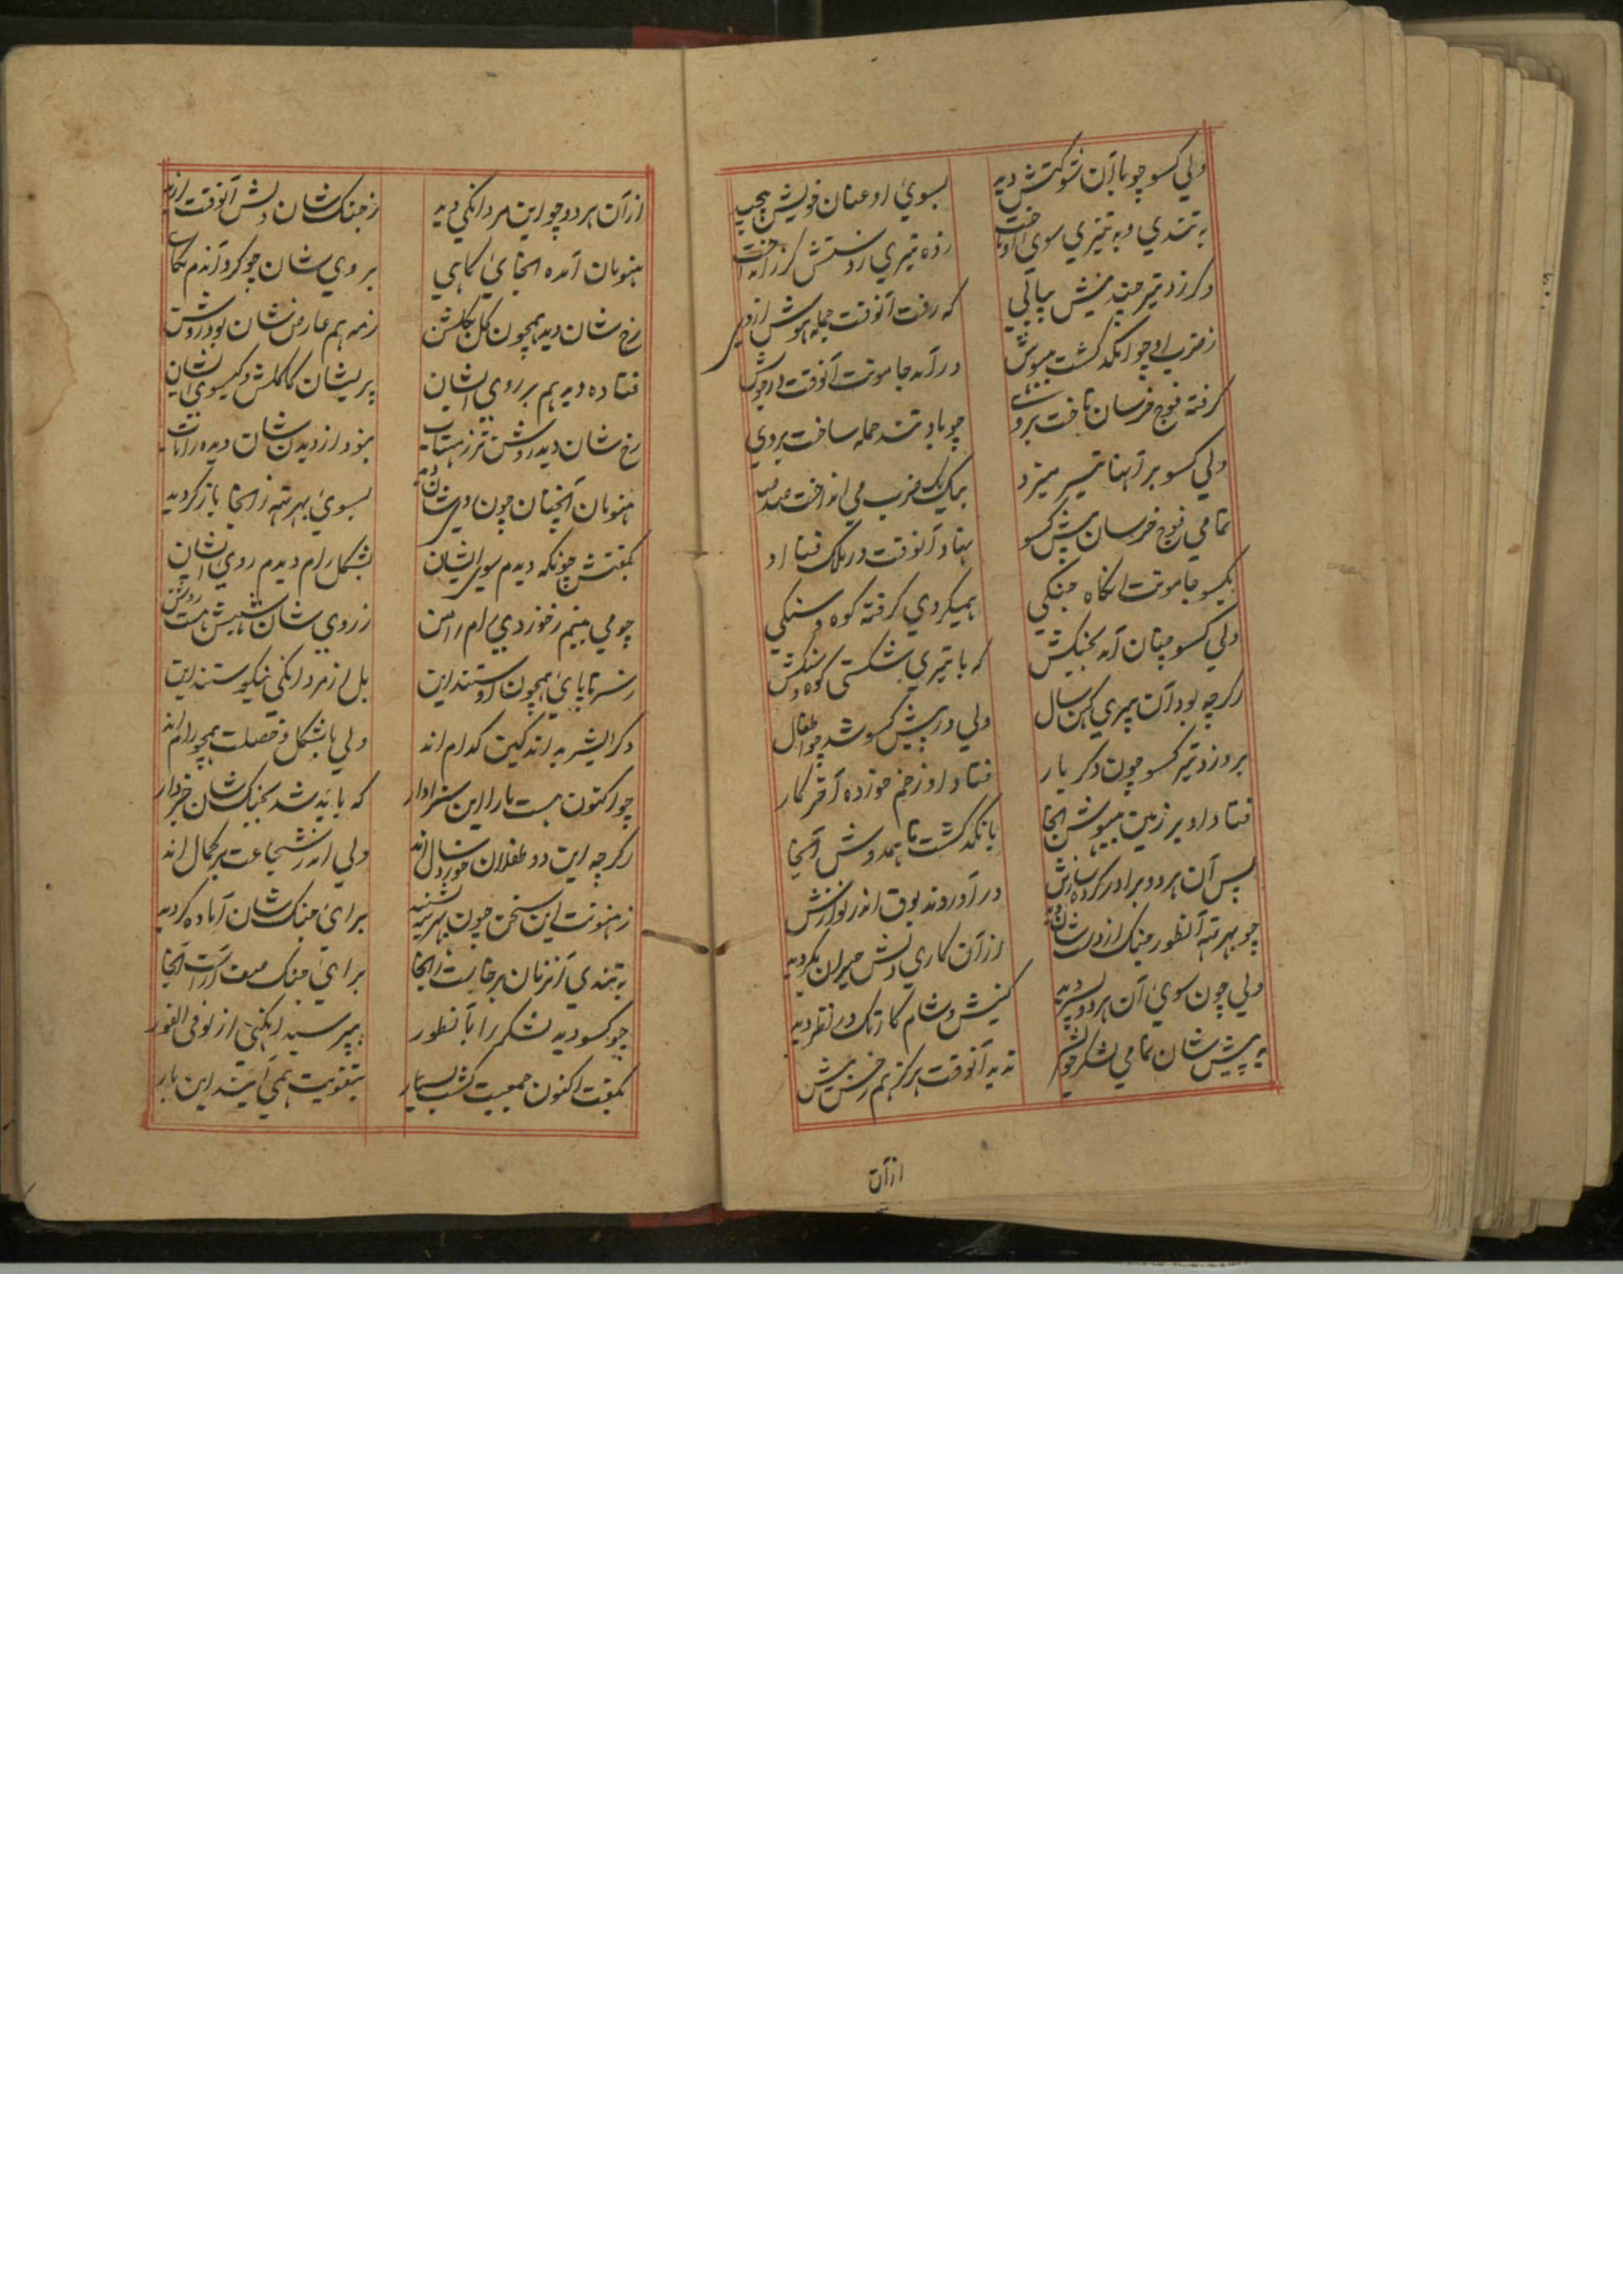 ولي کسو چو با آن شوکتش دید
بسویٔ او عنان خویش پیچید
به تندي و به تیزي سوی او تاخت
زده تیري ز دستش گرز انداخت
دگر زد تیر چندینش پیاپي
که رفت آنوقت جمله هوش از وی
ز ضرب او چو انگد گشت بیهوش
در آمد جامونت آنوقت در جوش
گرفته فوج خرسان تاخت بروی
چو باد تند حمله ساخت بروی
ولي کسو بر آنها تیر میزد
بیک یک ضرب می انداخت صد صد
تمامي فوج خرسان پیش کسو
یکسو جامونت انگاه جنگي
همیکردي گرفته کوه و سنگي
ولي کسو چنان آمد بجنگش
که با تیري شکستی کوه و سنگش
اگرچه بود آن پیري کهن سال
ولي در پیش کسو شد چو اطفال
برو زد تیر کسو چون دگر بار
فتاد او زخم خورده آخر کار
فتاد او بر زمین بیهوش آنجا
بانگد گشت تا همدوش آنجا
پس آن هر دو برادر کرده سازش
در آوردند بوق اندر نوازش
چو بهرته آنطور جنگ از دست شان دید
از آن کاري دلش حیران بگردید
ولي چون سویٔ آن هر دو پسر دید
کنیش و شام کارتک در نظر دید
به پیش شان تمامي لشکر خویش
ندید آنوقت هرگز هم رخش بیش
از آن
از آن هر دو چو این مردانگي دید
ز جنگ شان دلش آنوقت لرزید
هنومان آمده آنجایٔ گاهي
بروي شان چو کرد آندم نگاهی
رخ شان دید همچون گل بگلشن
ز مه هم عارض شان بود روشن
فتاده دید هم بر روي ایشان
پریشان کاکلش و گیسوی ایشان
رخ شان دید روشن تر ز مهتاب
نمود از دیدن شان دیده را آب
هنومان آنچنان چون روی شان دید
بسویٔ بهرته ز آنجا باز گردید
بگفتش چونکه دیدم سوی ایشان
بشکل رام دیدم روي ایشان
چو مي بینم ز خوردي رام را من
ز روي شان شبیهش هست روشن
ز سر تا پایٔ همچون او ستند این
بل از مردانگي نیکو ستند این
دگر ایشر بداند کین کدام اند
ولي با شکل و خصلت همچو رام اند
چو اکنون هست ما را این سزاوار
که باید شد بجنگ شان خبردار
اگرچه این دو طفلان خورد سال اند
ولي اندر شجاعت بر کمال اند
ز هنونت این سخن چون بهرته بشنید
برایٔ جنگ شان آماده گردید
به تندي آنزمان برخاست آنجا
برایٔ جنگ صف آراست آنجا
چو کسو دید لشکر را بآنطور
بپرسید از لو في الفور
بگفت اکنون جمعیت گشت بسیار
بتقویت همي آیند این بار